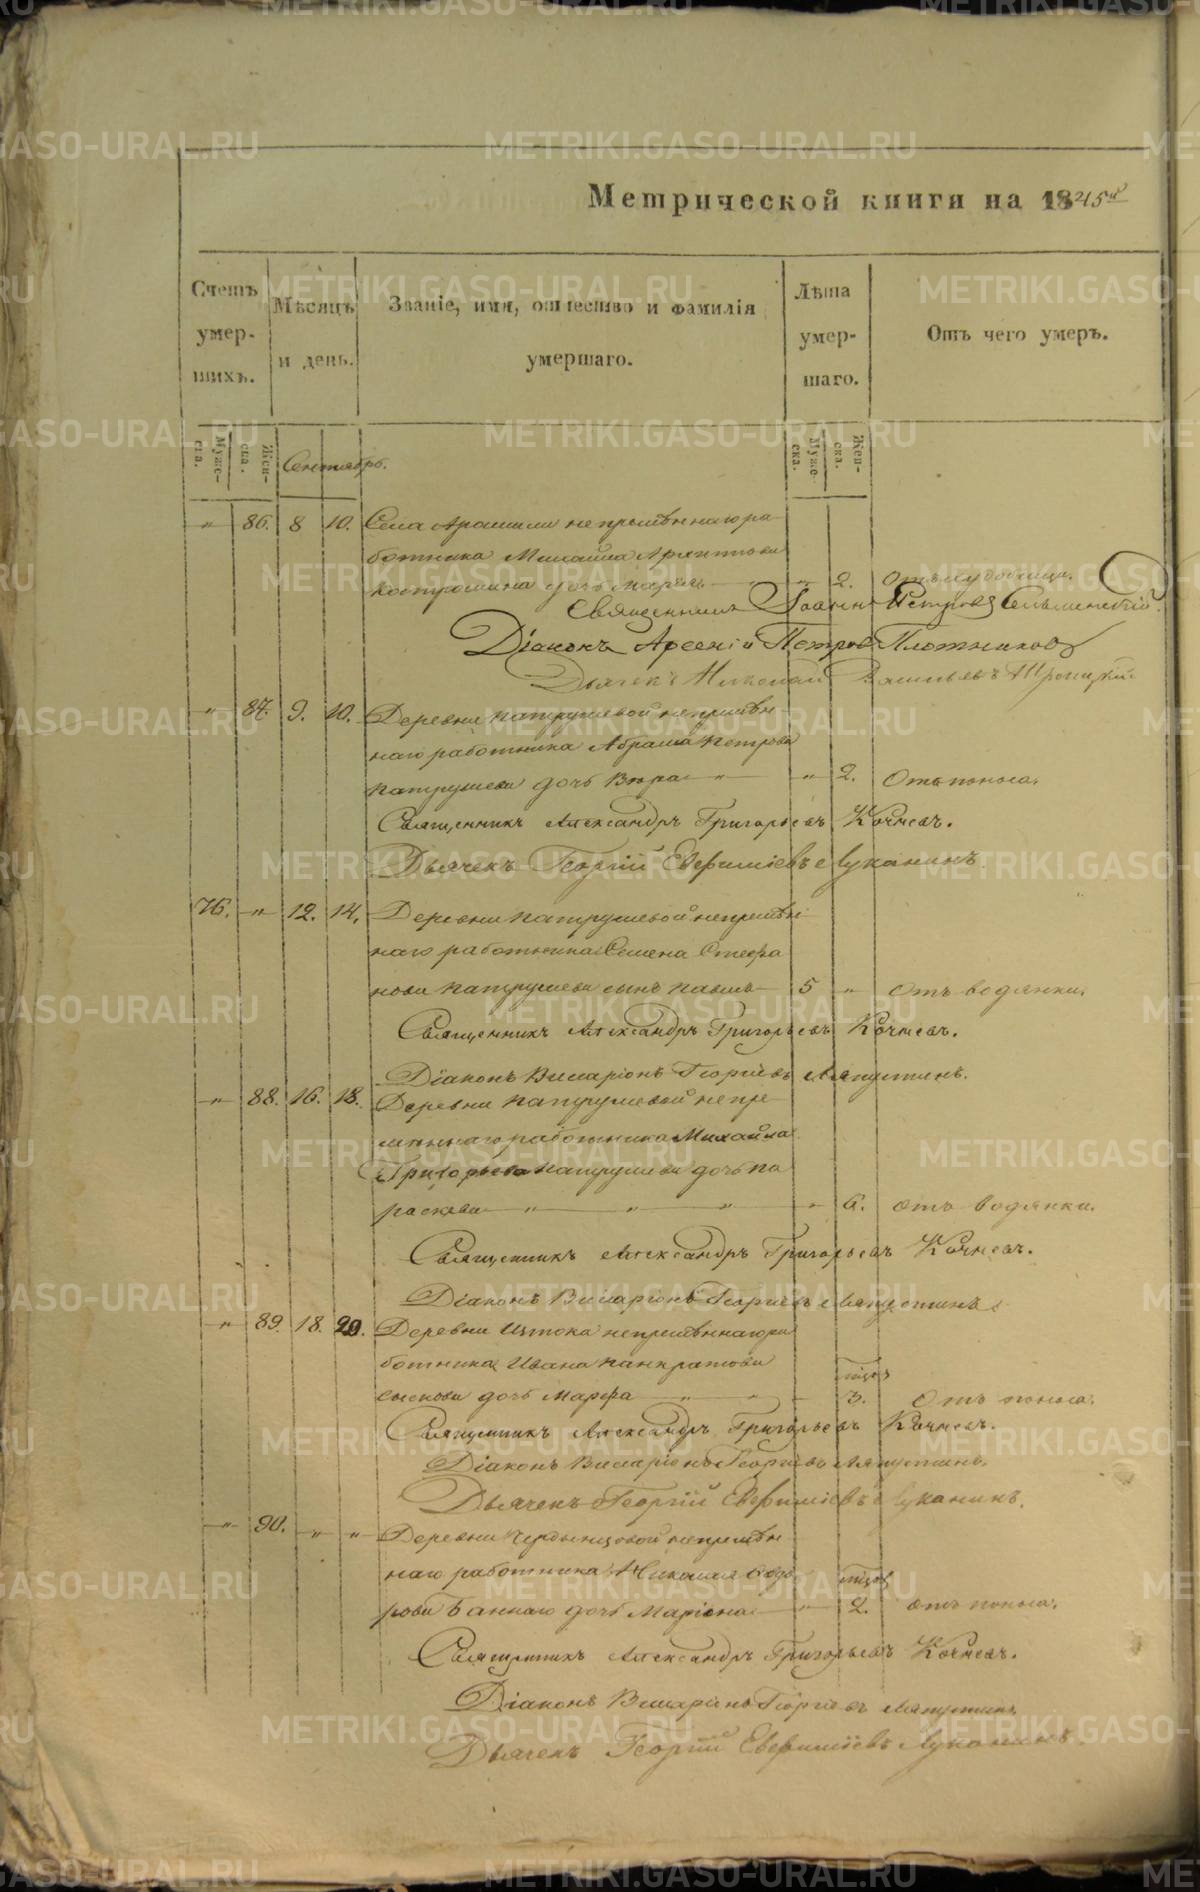 Метрической книги на 1845й
Счетъ умер-шихъ.
Мѣсяцъ и день.
Званіе, имя, отчество и фамилія умершаго.
Лѣта умер-шаго.
Отъ чего умеръ.
Муже-ска. Жен-ска. Сентябрь. Муже-ска. Жен-ска.
„ 86. 8 10. Села Арамили непремѣннаго ра-
ботника Михайла
Костромина дочь „ 2.
Священникъ Іоаннъ Петровъ Сельменскій.
Діаконъ Арсеній Петровъ Плотниковъ
Дьячекъ Николай Васильевъ Троицкій
„ 87. 9. 10. Деревни Патрушевой непремѣн-
наго работника Абрама Петрова
Патрушева дочь Вѣра „ „ 2. Отъ поноса.
Священникъ Александръ Григорьевъ Кочневъ.
Дьячекъ Георгій Евфиміевъ Луканинъ.
76. „ 12. 14. Деревни Патрушевой непремѣн
наго работника Семена Стефа
нова Патрушева сынъ Павелъ 5 „ Отъ водянки.
Священникъ Александръ Григорьевъ Кочневъ.
Діаконъ Виссаріонъ Георгіевъ Ляпустинъ.
„ 88. 16. 18. Деревни Патрушевой непре
мѣннаго работника Михайла
Григорьева Патрушева дочь Па
раскева „ „ „ „ 6. отъ водянки.
Священникъ Александръ Григорьевъ Кочневъ.
Діаконъ Виссаріонъ Георгіевъ Ляпустинъ
„ 89. 18. 20. Деревни Истока непремѣннаго ра
ботника Ивана Панкратова
дочь Марфа „ „ 3. Отъ поноса.
Священникъ Александръ Григорьевъ Кочневъ.
Діаконъ Виссаріонъ Георгіевъ Ляпустинъ.
Дьячекъ Георгій Евфиміевъ Луканинъ.
„ 90. „ „ Деревни непремѣн
наго работника Николая Ѳедо
рова дочь Маріона „ 2. отъ поноса.
Священникъ Александръ Григорьевъ Кочневъ.
Діаконъ Виссаріонъ Георгіевъ Ляпустинъ
Дьячекъ Георгій Евфиміевъ Луканинъ.
METRIKI.GASO-URAL.RU